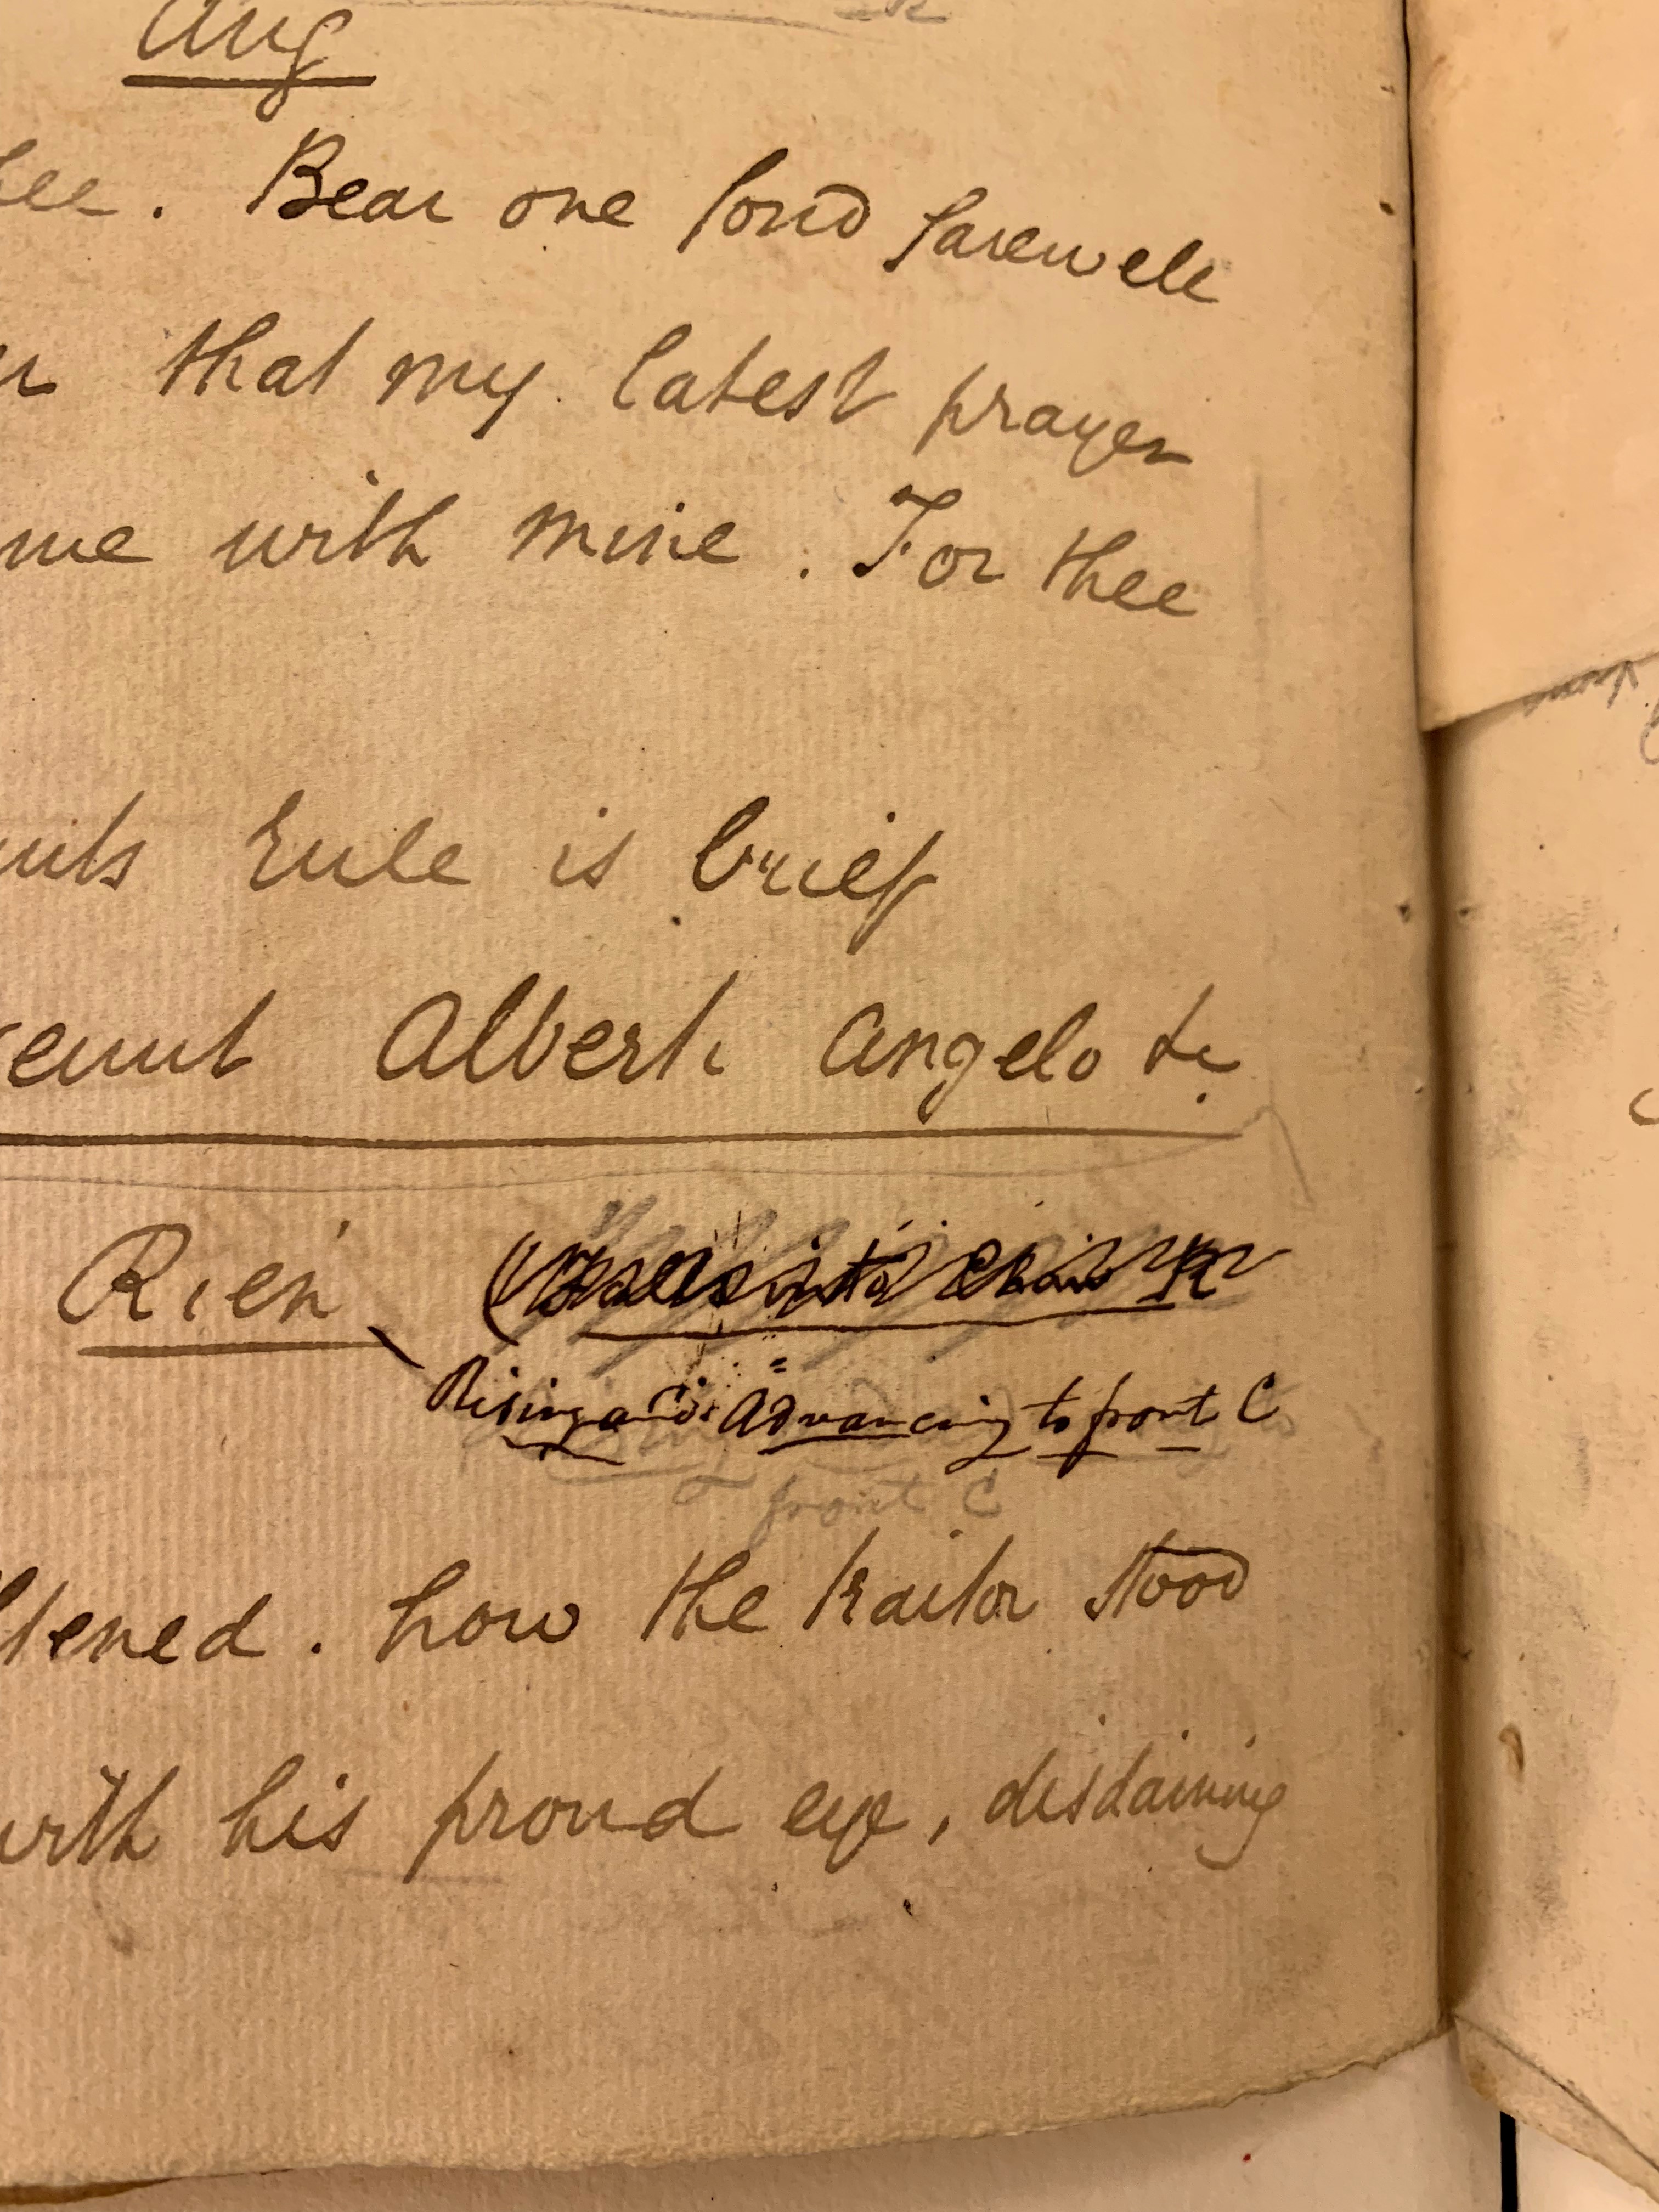 Aug
Bear one fond farewell
that my latest prayer
me with mine. For thee
rule is brief
Albert Angelo &c
Rien
into chair R
Rising and Advancing to front C
front C
how the traitor stood
with his proud eye, disdaining